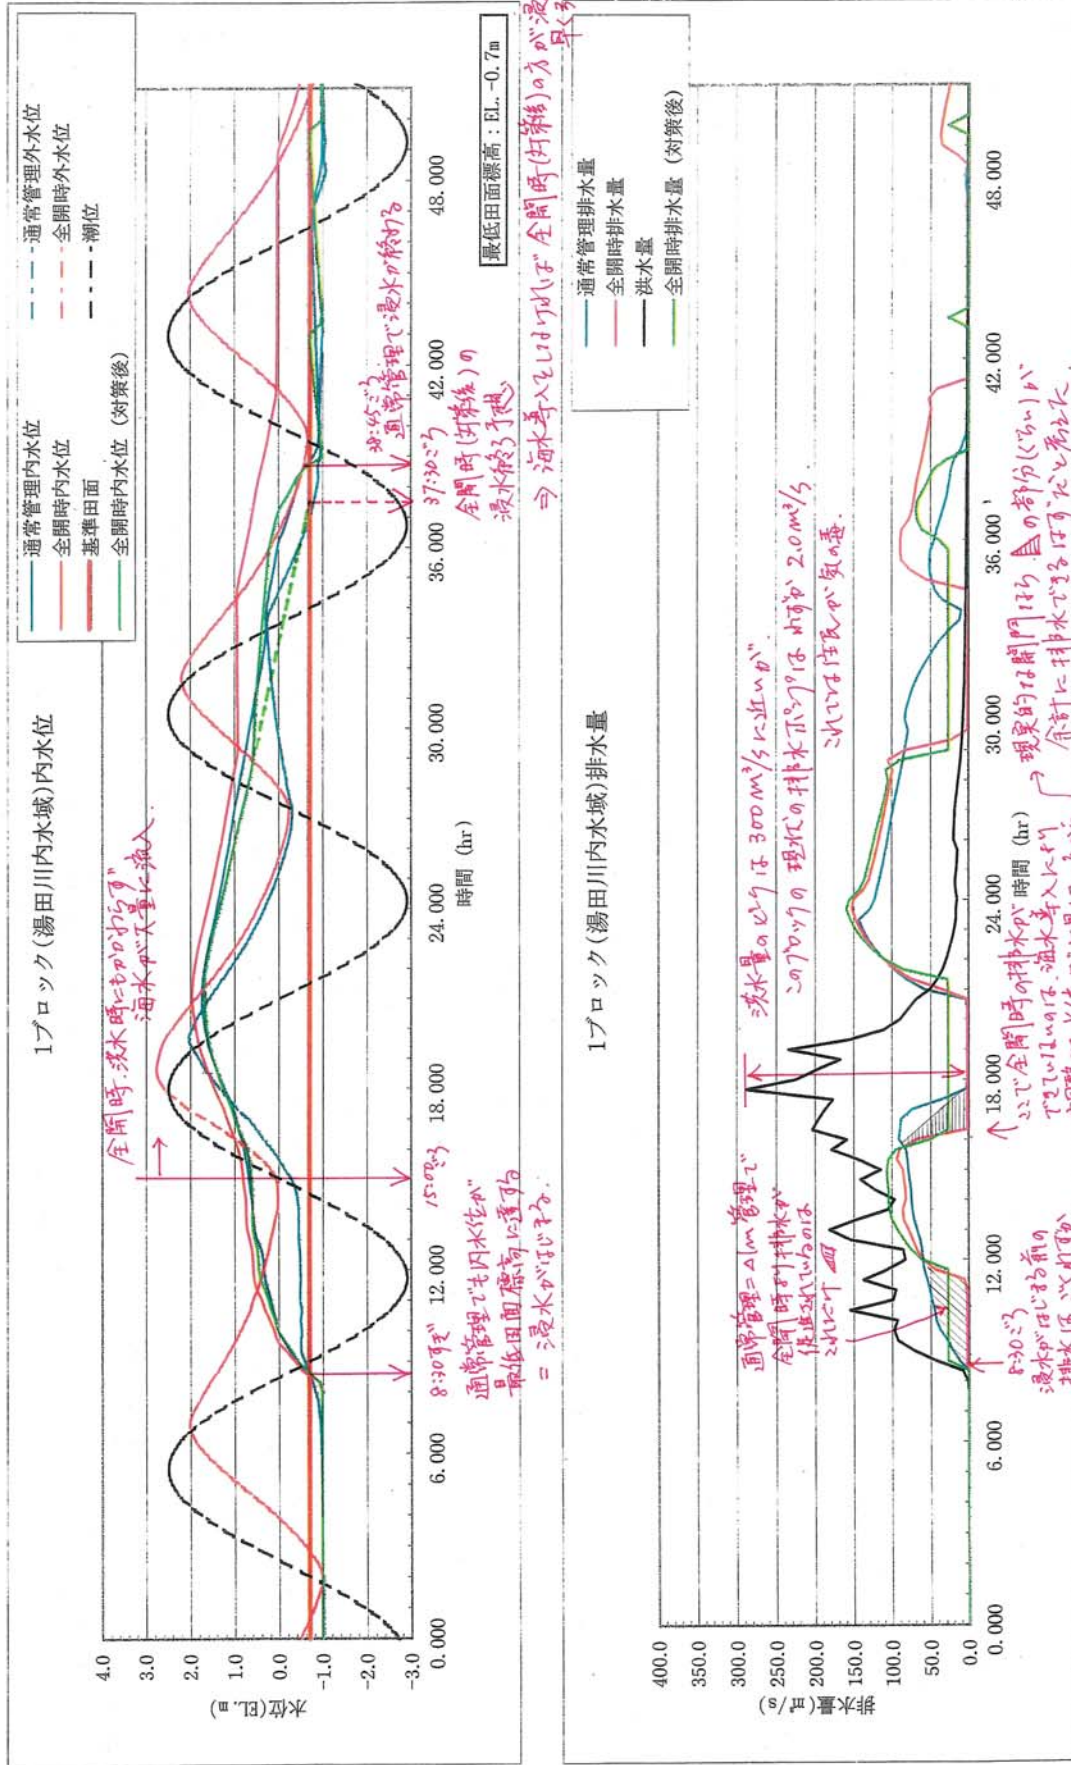 1ブロック(湯田川内水域)内水位
通常管理内水位
全開時内水位
基準田面
全開時内水位 (対策後)
通常管理外水位
全開時外水位
潮位
水位(EL.m)
4.0
3.0
2.0
1.0
0.0
-1.0
-2.0
-3.0
0.000
6.000
12.000
18.000
24.000
30.000
36.000
42.000
48.000
時間 (hr)
最低田面標高：EL.-0.7m
全開時、洪水時にもかかわらず
海水が大量に流入
8:30すぎ
通常管理でも内水位が
最低田面標高に達する
= 浸水がはじまる.
15:00ごろ
37:30ごろ
全開時(対策後)の
浸水終了予想
38:45ごろ
通常管理で浸水が終わる
⇒ 海水導入をしなければ 全開時(対策後)の方が浸
早く
1ブロック(湯田川内水域)排水量
通常管理排水量
全開時排水量
洪水量
全開時排水量 (対策後)
排水量(㎥/s)
400.0
350.0
300.0
250.0
200.0
150.0
100.0
50.0
0.0
0.000
6.000
12.000
18.000
24.000
30.000
36.000
42.000
48.000
時間 (hr)
洪水量のピークは 300m³/sに近いが
このブロックの 現状の排水ポンプは わずか 2.0m³/s
これでは住民が気の毒.
通常管理=△1m管理で
全開時より排水が
促進されているのは
これだけ
8:30ごろ
浸水がはじまる前の
排水はごくわずか
ここで全開時の排水が
できていないのは、海水導入により
現実的な開門なら の部分(ぐらい)が
余計に排水できるはずだと考えた.